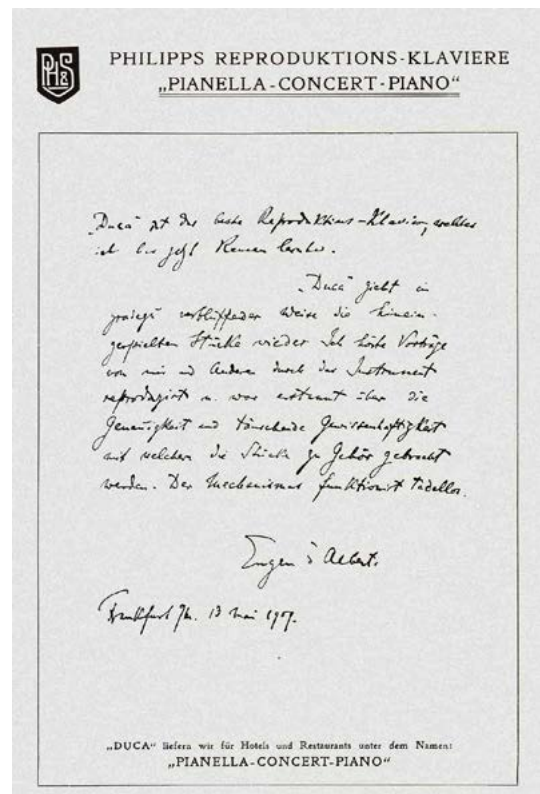 PH&S
PHILIPPS REPRODUKTIONS-KLAVIERE
„PIANELLA-CONCERT-PIANO“
„Duca“ ist das beste Reproduktions-Klavier, welches
ich bis jetzt kennen lernte.
„Duca“ giebt in
geradezu verblüffender Weise die hinein-
gespielten Stücke wieder. Ich hörte Vorträge
von mir und Anderen durch das Instrument
reproduzirt u. war erstaunt über die
Genauigkeit und täuschende Gewissenhaftigkeit
mit welchem die Stücke zu Gehör gebracht
werden. Der Mechanismus funktionirt tadellos.
Eugen d'Albert.
Frankfurt 13 Mai 1909.
„DUCA“ liefern wir für Hotels und Restaurants unter dem Namen:
„PIANELLA-CONCERT-PIANO“